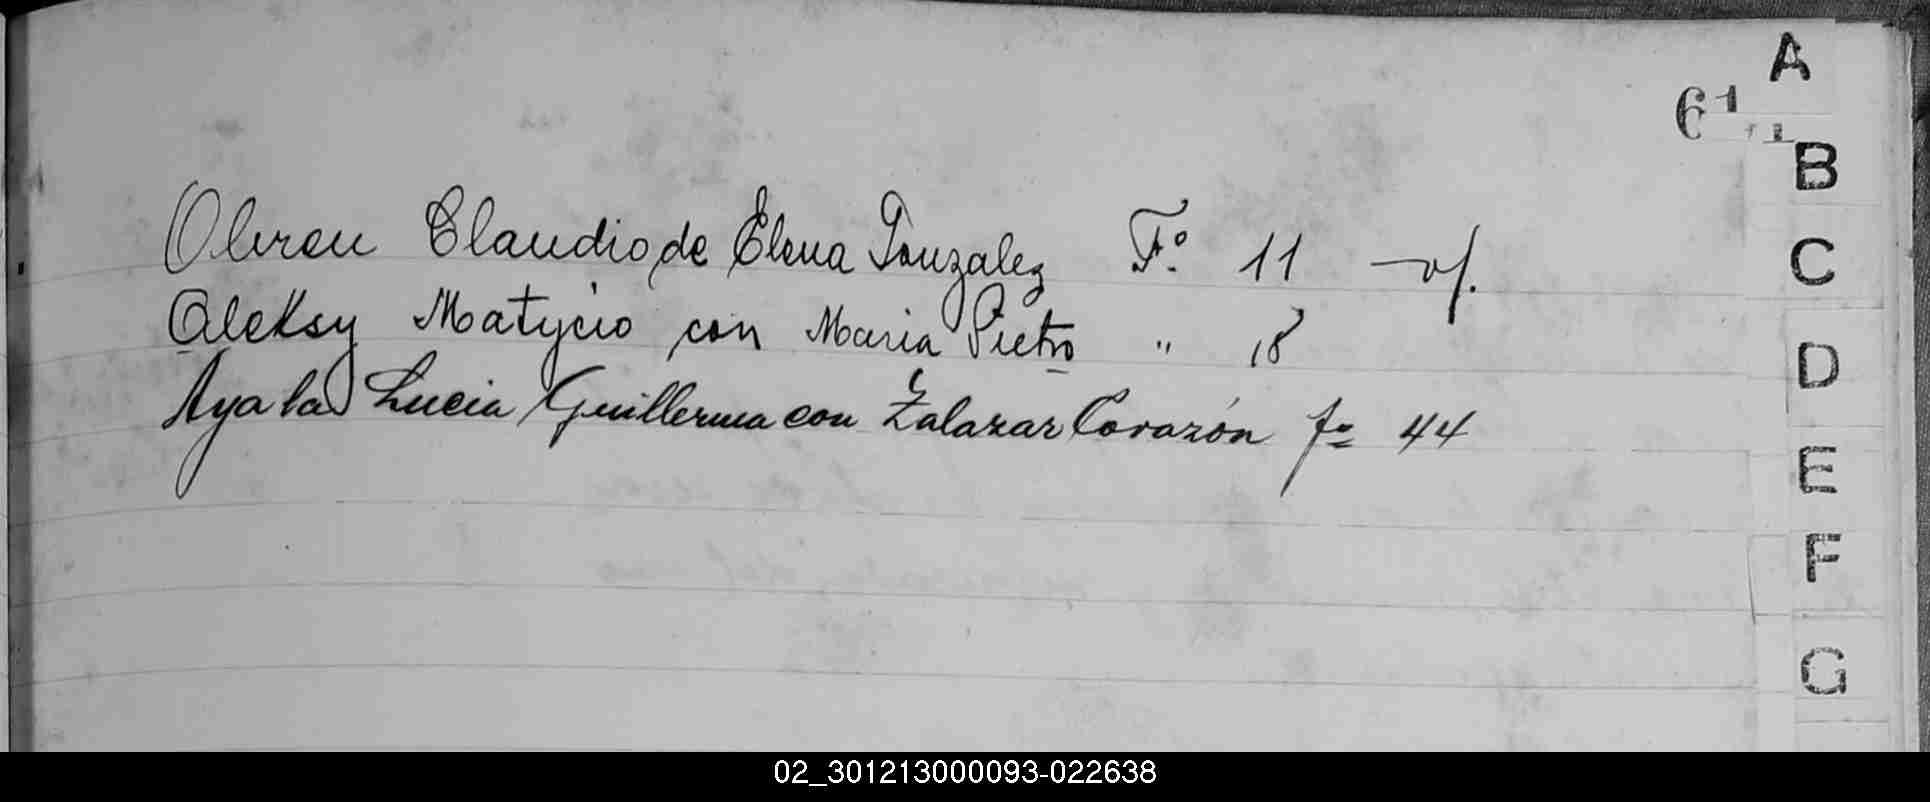 A
61
B
Abreu Claudio de Elena Gonzalez Fº. 11 — v/.
C
Aleksy Matycio con Maria Pietro " 18
D
Ayala Lucia Guillerma con Zalazar Corazón fº 44
E
F
G
02_301213000093-022638